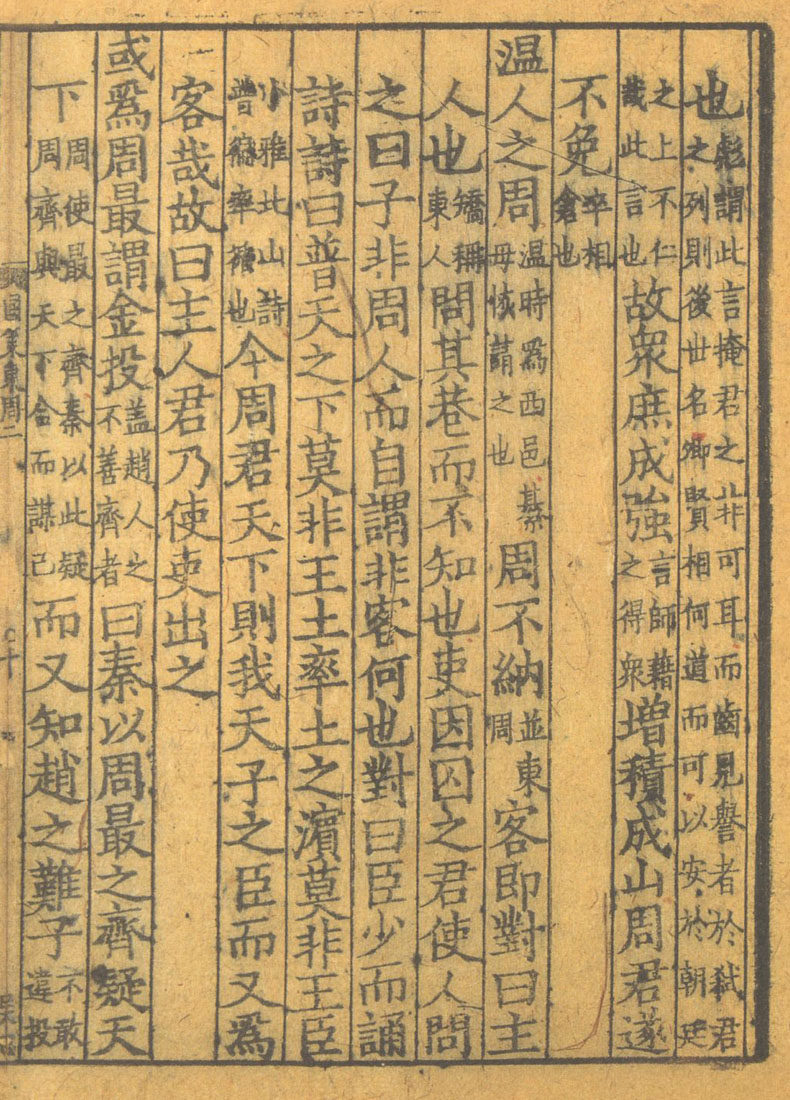 也彪謂此言掩君之非可耳而齒見譽者於弑君之列則後世名卿賢相何道而可以安於朝廷
之上不仁哉此言也故衆庶成強言師藉之得衆增積成山周君遂
不免卒相倉也
温人之周温時爲西邑綦毋恢請之也周不納並東周客即對曰主
人也矯稱東人問其巷而不知也吏因囚之君使人問
之曰子非周人而自謂非客何也對曰臣少而誦
詩詩曰普天之下莫非王土率土之濵莫非王臣
小雅北山詩普徧率循也今周君天下則我天子之臣而又爲
客哉故曰主人君乃使吏出之
或爲周最謂金投盖趙人之不善齊者曰秦以周最之齊疑天
下周使最之齊秦以此疑周齊與天下合而謀己而又知趙之難子不敢違投
國策東周二
十